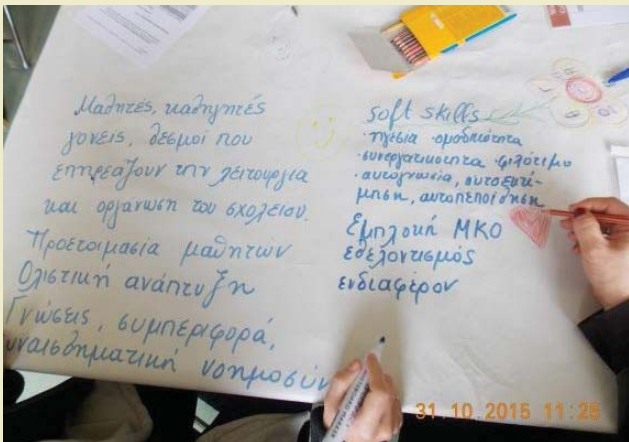 Μαθητές, καθηγητές
γονείς, δεσμοί που
επηρεάζουν την λειτουργία
και οργάνωση του σχολείου.
Προετοιμασία μαθητών
Ολιστική ανάπτυξη
Γνώσεις, συμπεριφορά,
συναισθηματική νοημοσύν
soft skills
· ηγεσία ομαδικότητα
· συνεργατικότητα φιλότιμο
· αυτογνωσία, αυτοεκτί-
μηση, αυτοπεποίθηση
Εμπλοκή ΜΚΟ
εθελοντισμός
ενδιαφέρον
31.10.2015 11:25